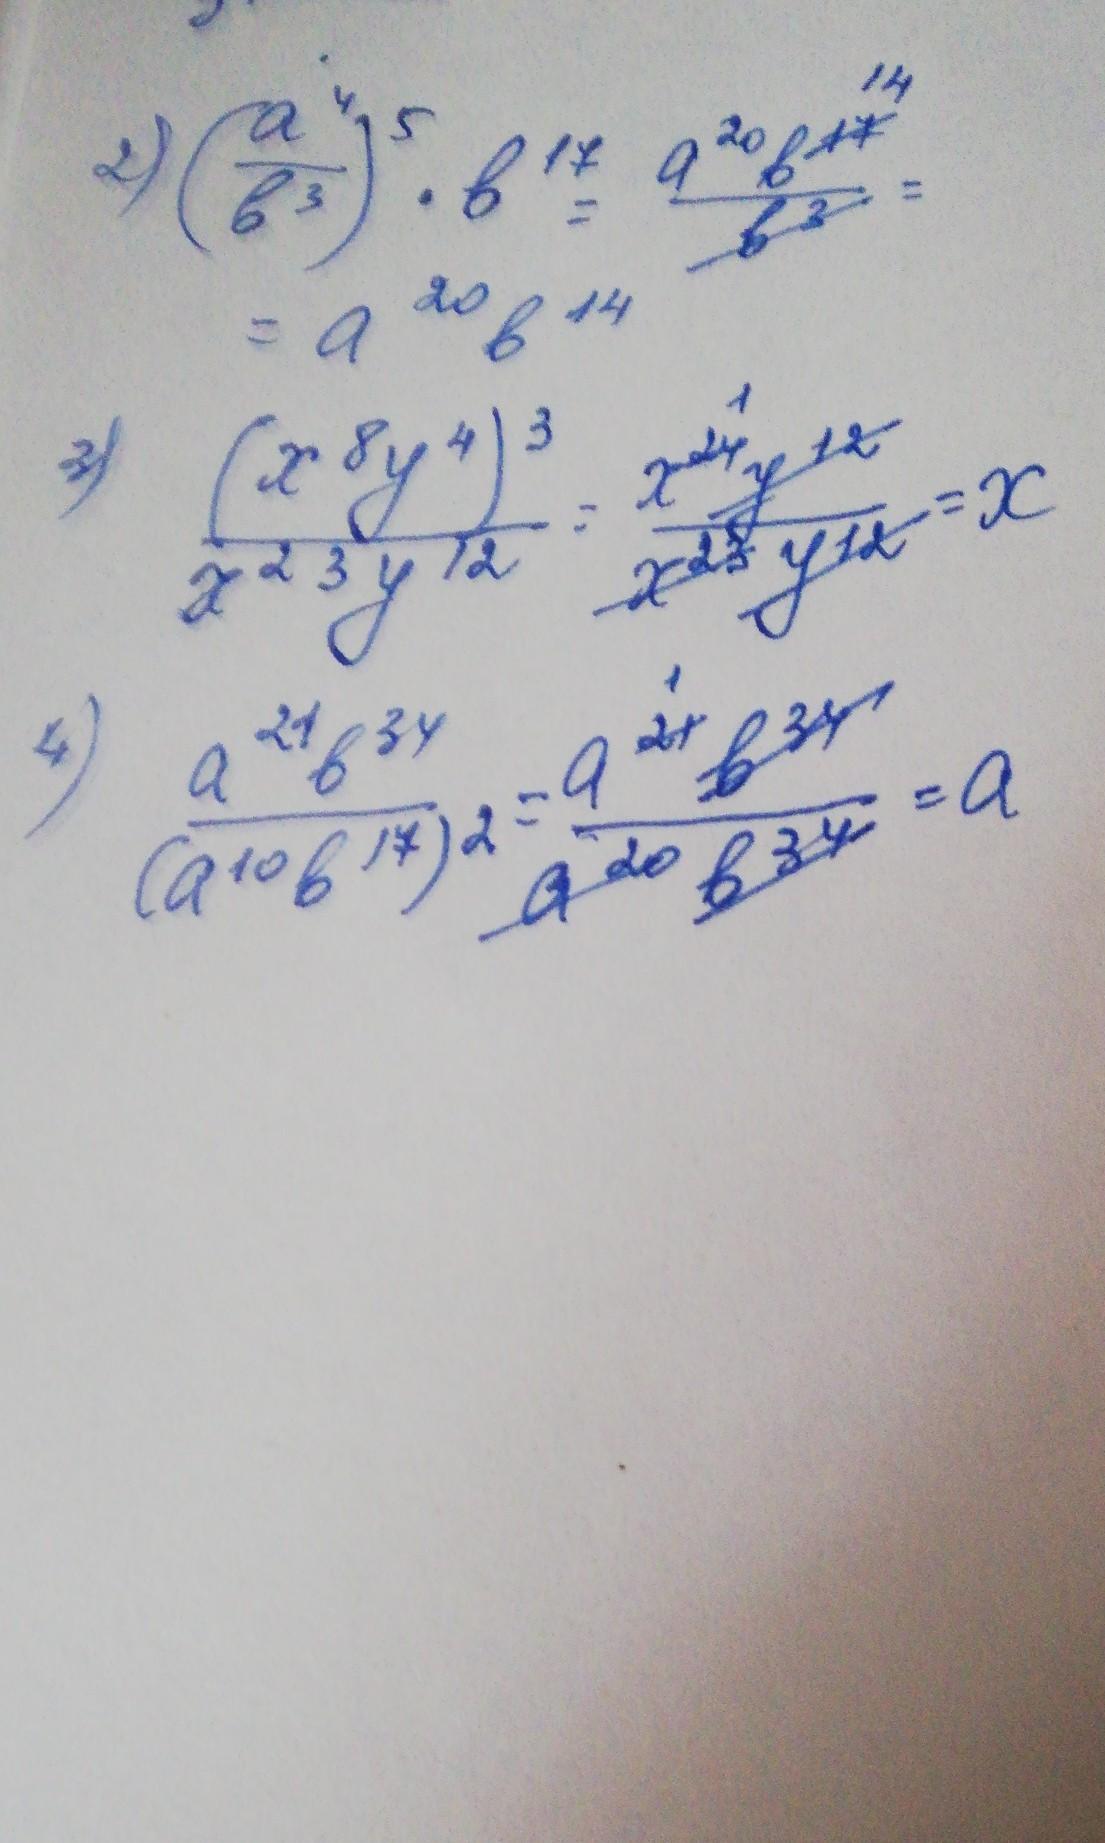 2) (a^4/b^3)^5 · b^17 = a^20 b^17 14 / b^3 =
= a^20 b^14
3) (x^8 y^4)^3 / x^23 y^12 = x^24 1 y^12 / x^23 y^12 = x
4) a^21 b^34 / (a^10 b^17)^2 = a^21 1 b^34 / a^20 b^34 = a